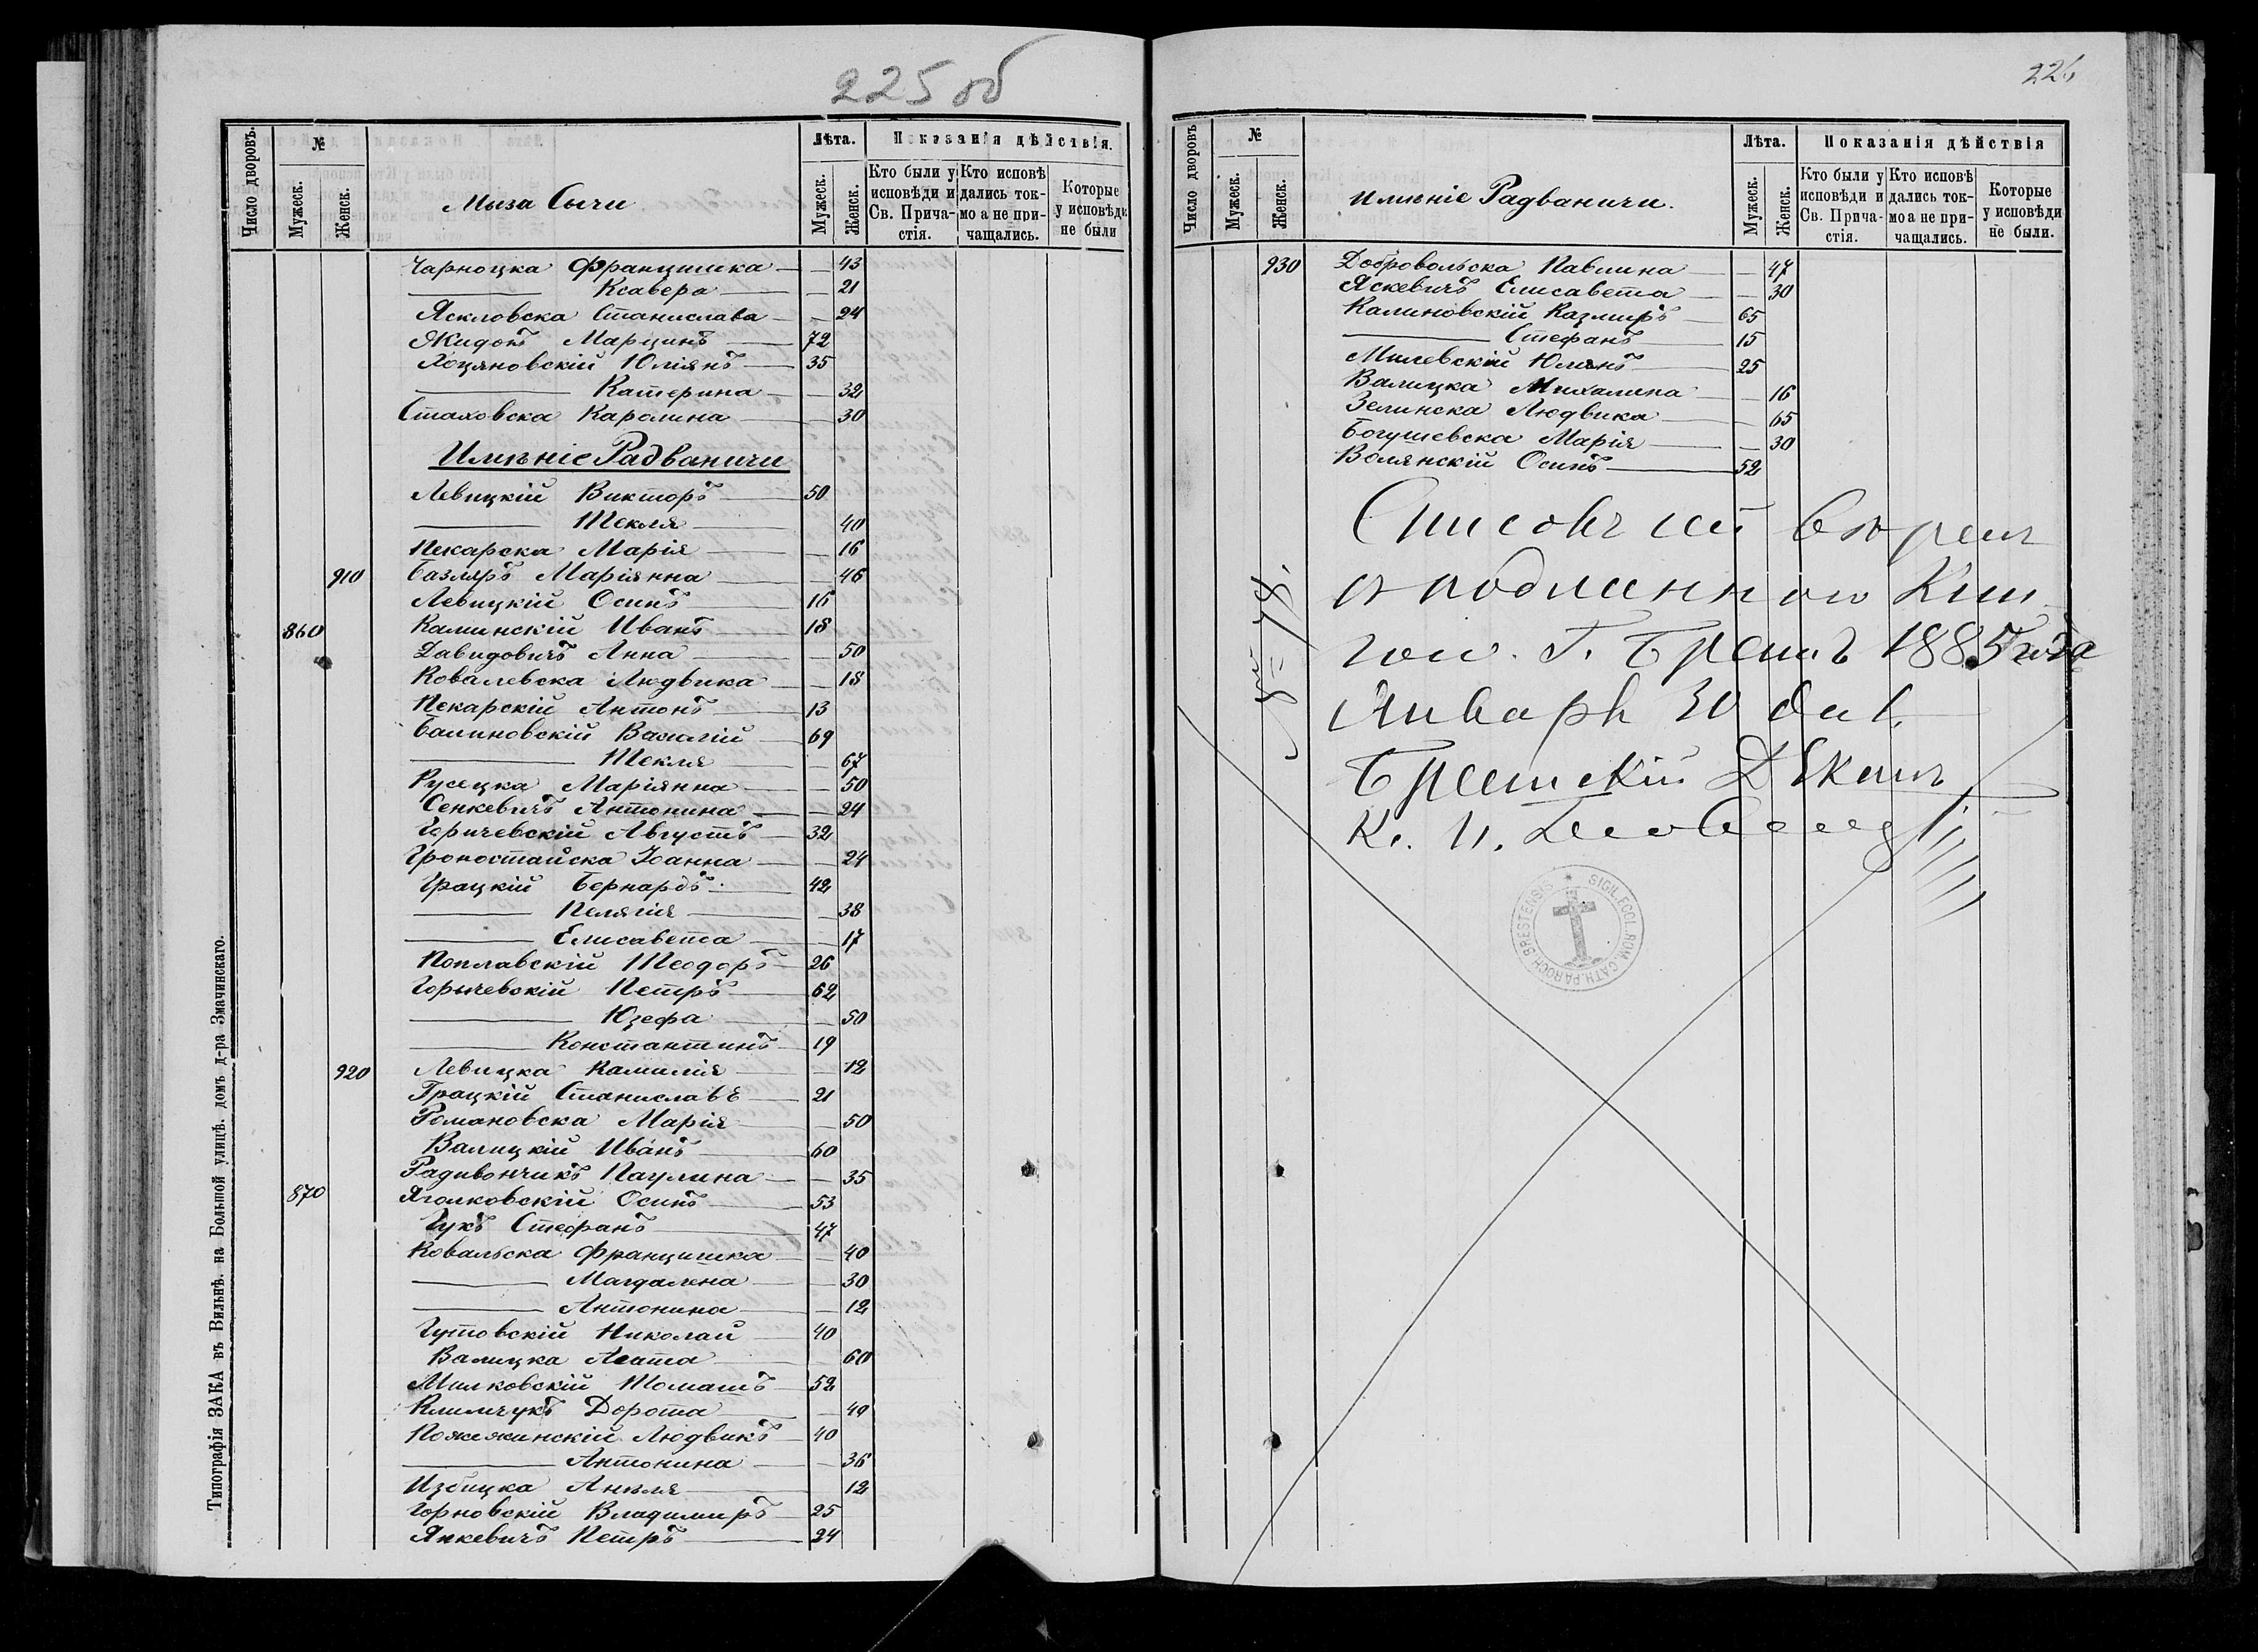 225 об
Число дворовъ.
№
Мужеск.
Женск.
Мыза Сычи
Лѣта.
Мужеск.
Женск.
Показанія дѣйствія.
Кто были у исповѣди и Св. Причастія.
Кто исповѣдались токмо а не причащались.
Которые у исповѣди не были
Чарноцка Францишка — 43
— Ксавера — 21
Яскловска Станислава — 24
Жидокъ Марцинъ 72
Хоцяновскій Юліянъ 35
— Катерина — 32
Стаховска Каролина 30
Имѣніе Радваничи
Левицкій Викторъ 50
— Текля 40
Пекарска Марія — 16
910 Базляръ Маріянна — 46
Левицкій Осипъ 16
860 Каминскій Иванъ 18
Давидовичъ Анна — 50
Ковалевска Людвика — 18
Пекарскій Антонъ 13
Калиновскій Василій 69
— Текля — 67
Русецка Маріянна — 50
Сенкевичъ Антонина — 24
Горичевскій Августъ 32
Гроностайска Іоанна — 24
Грацкій Бернардъ 42
— Пелягія — 38
— Елисавета — 17
Поплавскій Теодоръ 26
Горычевскій Петръ 62
— Юзефа — 50
— Константинъ 19
920 Левицка Камилія — 12
Грацкій Станиславъ 21
Романовска Марія — 50
Валицкій Иванъ 60
Радивончикъ Паулина — 35
870 Яголковскій Осипъ 53
Гукъ Стефанъ 47
Ковальска Францишка — 40
— Магдалена — 30
— Антонина — 12
Гутовскій Николай 40
Валицка Агата 60
Милковскій Томашъ 52
Климчукъ Дорота — 40
Пожежинскій Людвикъ 40
— Антонина — 36
Избицка Анеля 12
Горновскій Владимиръ 25
Янкевичъ Петръ 24
Типографія ЗАКА въ Вильнѣ. на Большой улицѣ. домъ д-ра Змачинскаго.
226
Число дворовъ
№
Мужеск.
Женск.
имѣніе Радваничи.
Лѣта.
Мужеск.
Женск.
Показанія дѣйствія
Кто были у исповѣди и Св. Причастія.
Кто исповѣдались токмо а не причащались.
Которые у исповѣди не были.
930 Добровольска Павлина — 47
Яскевичъ Елисавета — 30
Калиновскій Казмиръ 65
— Стефанъ 15
Милевскій Юлянъ 25
Валицка Михалина — 16
Зелинска Людвика — 65
Богушевска Марія — 30
Волянскій Осипъ 52
Списокъ сей вѣренъ
съ подлинною Кни
гою. Г. Брестъ 1885 года
Январь 30 дня.
Брестскій Деканъ
№ 78.
SIGIL. ECCL. ROM. CATH. PAROCH. BRESTENSIS